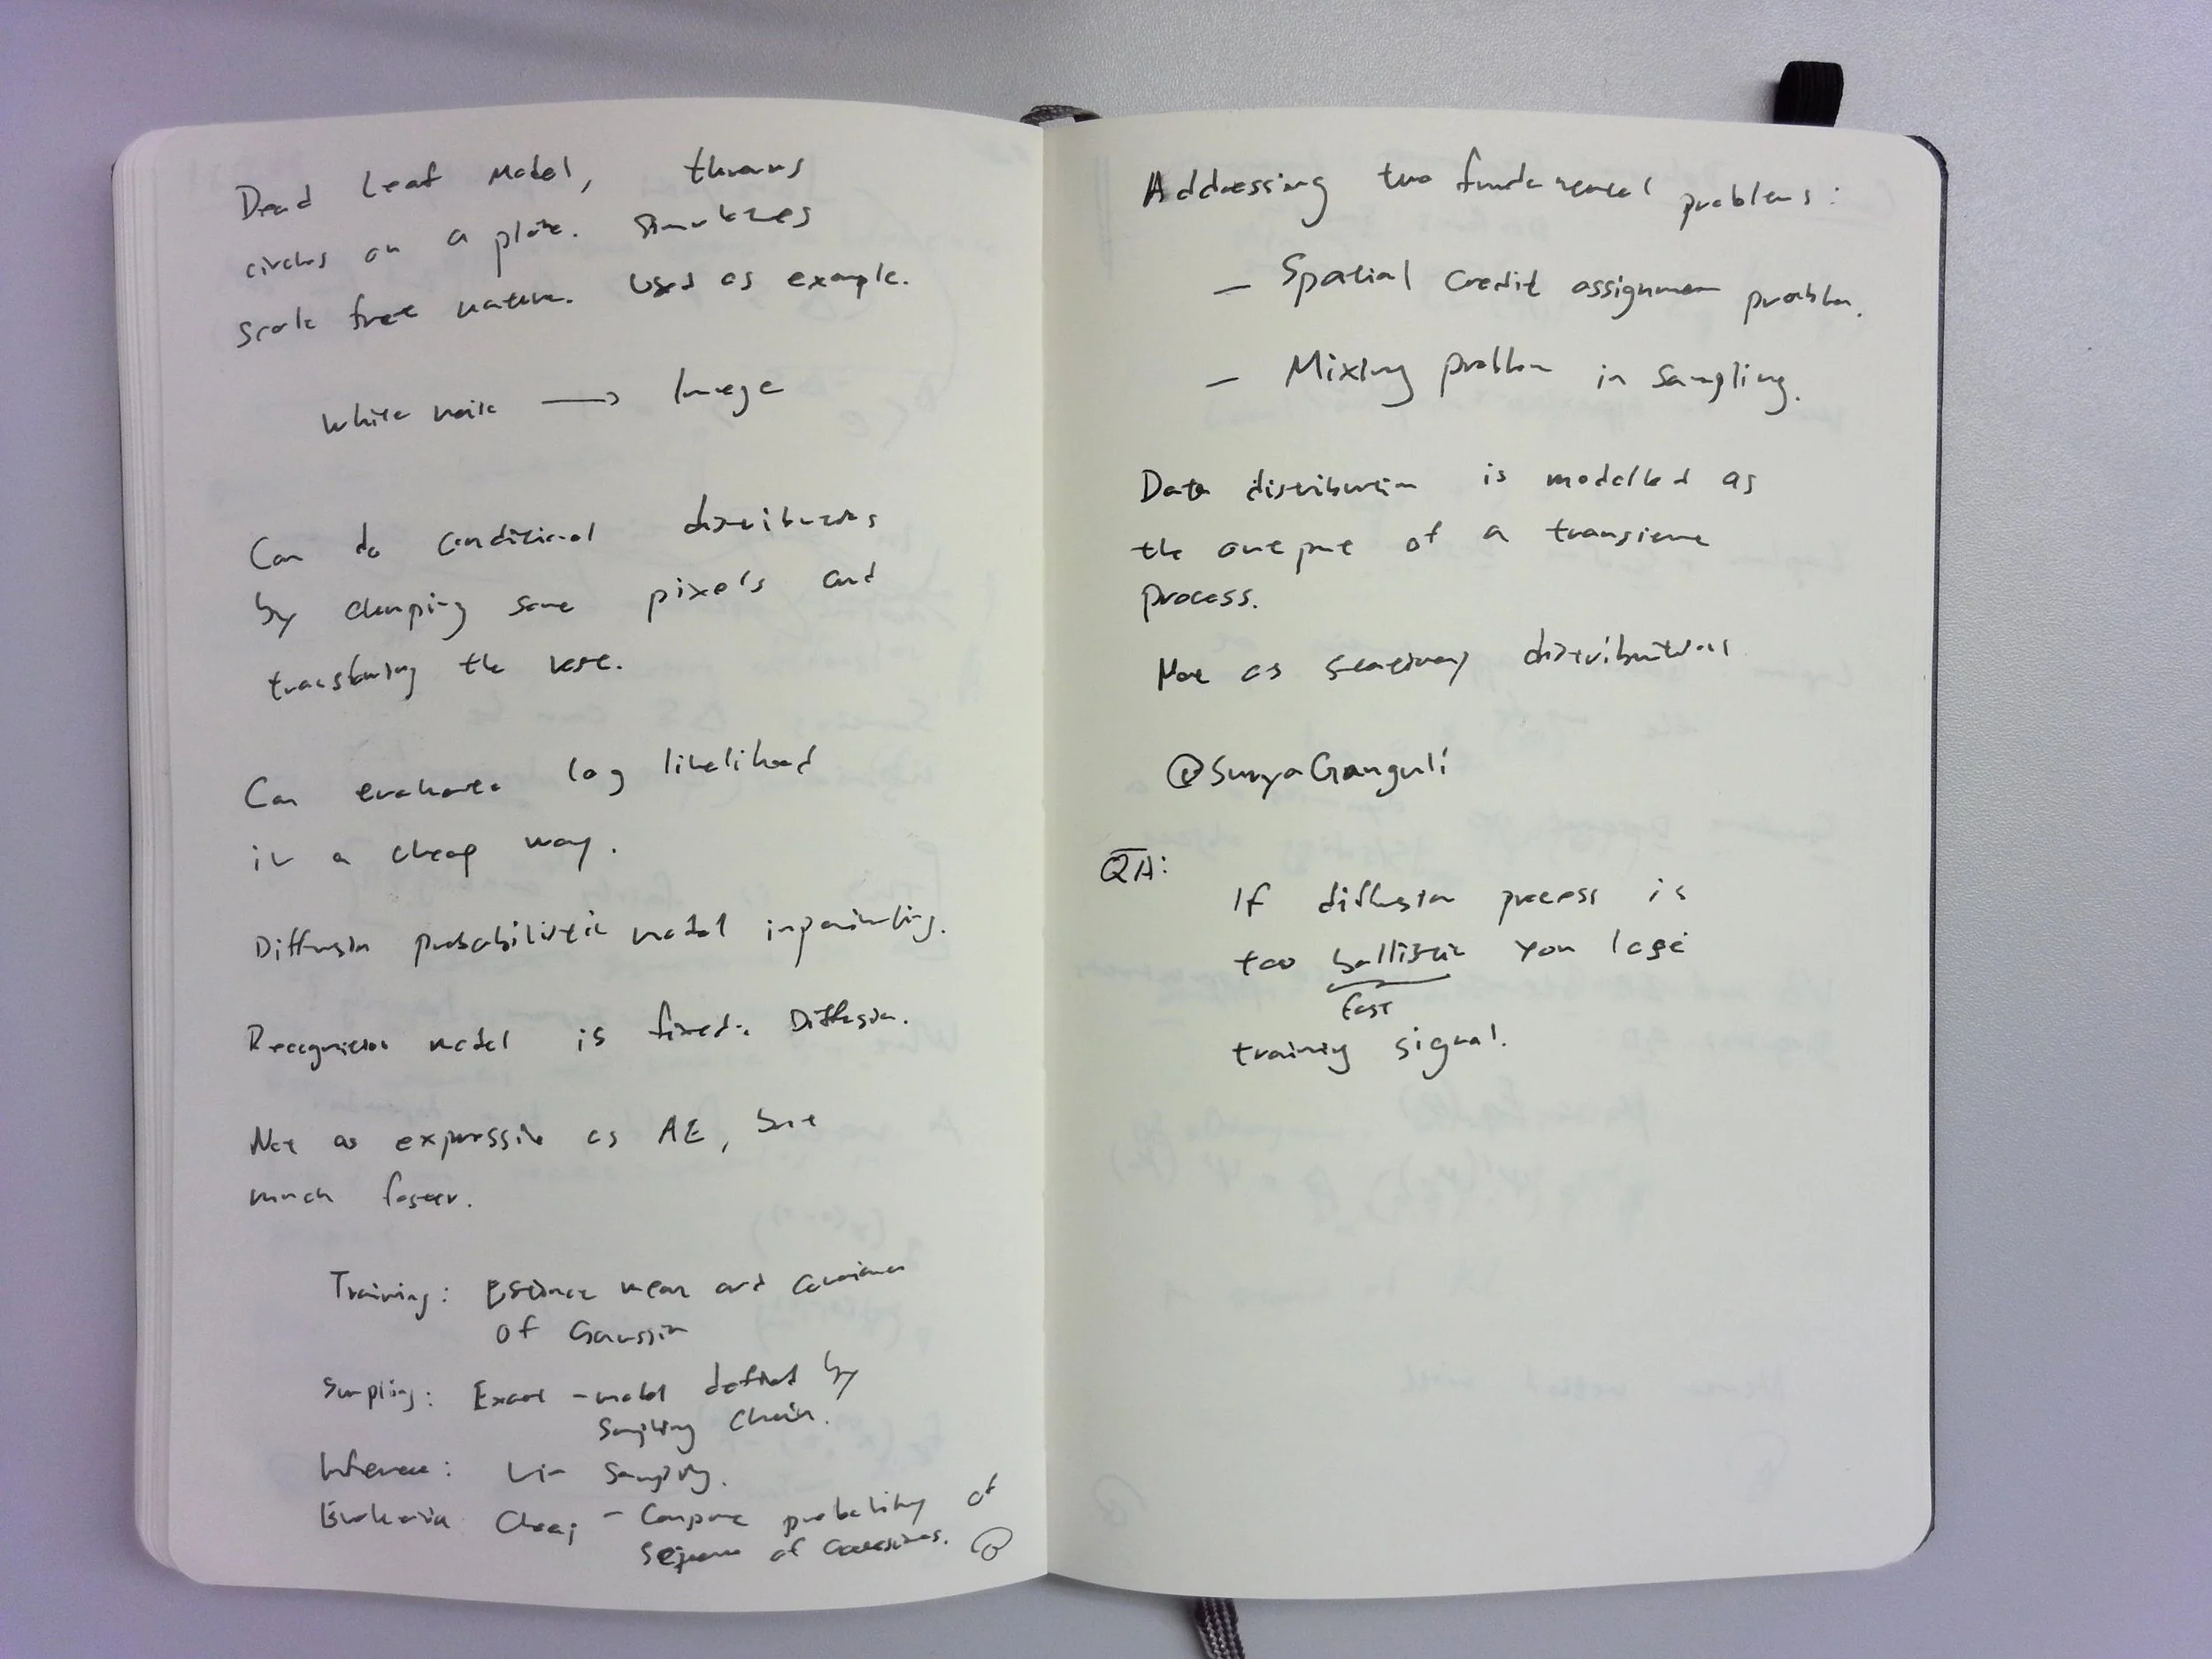 Dead Leaf Model, throws
circles on a plate. Simulates
scale free nature. Used as example.
White noise → Image
Can do conditional distributions
by clamping some pixels and
transforming the rest.
Can evaluate log likelihood
in a cheap way.
Diffusion probabilistic model inpainting.
Recognition model is fixed: Diffusion.
Not as expressive as AE, but
much faster.
Training: Estimate mean and covariance
of Gaussian
Sampling: Exact - model defined by
Sampling Chain.
Inference: Via Sampling.
Evaluation Cheap - Compare probability of
Sequence of Gaussians.
Addressing two fundamental problems:
- Spatial credit assignment problem.
- Mixing problem in Sampling.
Data distribution is modelled as
the output of a transient
process.
Not as stationary distributions
@SuryaGanguli
QA:
If diffusion process is
too ballistic you lose
fast
training signal.